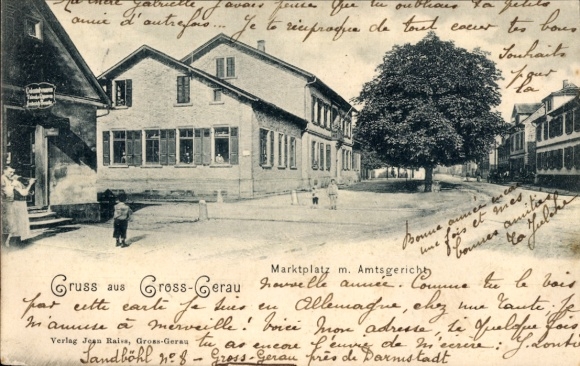 Mathilde Gabrielle j'avais pensé que tu oubliais ta petite
amie d'autrefois... Je te réciproque de tout coeur tes bons
Souhaits
pour
la
nouvelle année. Comme tu le vois
par cette carte je suis en Allemagne, chez une tante. Je
m'amuse à merveille! Voici mon adresse, si quelque fois
tu as encore l'envie de m'écrire: J.
Sandböhl no 8 - Gross-Gerau près de Darmstadt
Bonne année encore
une fois et mes
bonnes amitiés
ta Julche
Marktplatz m. Amtsgericht
Gruss aus Gross-Gerau
Verlag Jean Raiss, Gross-Gerau